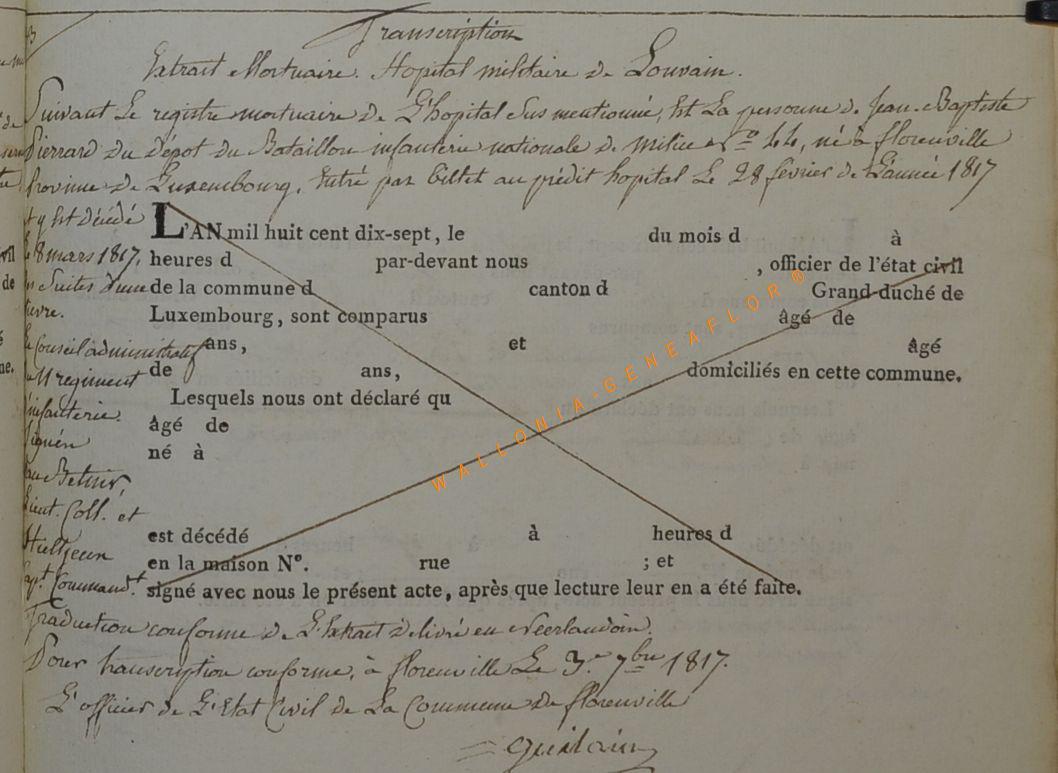 Transcription
Extrait Mortuaire. Hopital militaire de Louvain.
Suivant Le registre mortuaire de L'hopital Sus mentionné, Est La personne de Jean-Baptiste
Pierrard du dépot du Bataillon infanterie nationale de milice No 44, né à florenville
Province de Luxembourg, Entré par billet au prédit hopital Le 28 février de L'année 1817
et y Est décédé
le 8 mars 1817,
des Suites d'une
fievre.
Le Conseil administratif
du 11 regiment
d'infanterie.
Signés
Lieut. Coll. et
Capt. Command.t
L'AN mil huit cent dix-sept, le du mois d à
heures d par-devant nous , officier de l'état civil
de la commune d canton d Grand-duché de
Luxembourg, sont comparus âgé de
ans, et âgé
de ans, domiciliés en cette commune.
Lesquels nous ont déclaré qu
âgé de
né à
est décédé à heures d
en la maison N°. rue ; et
signé avec nous le présent acte, après que lecture leur en a été faite.
WALLONIA-GENEAFLOR®
Traduction conforme de L'Extrait délivré en Néerlandois.
Pour transcription conforme, à florenville Le 3.e 7bre 1817.
L'officier de L'Etat Civil de La Commune de florenville